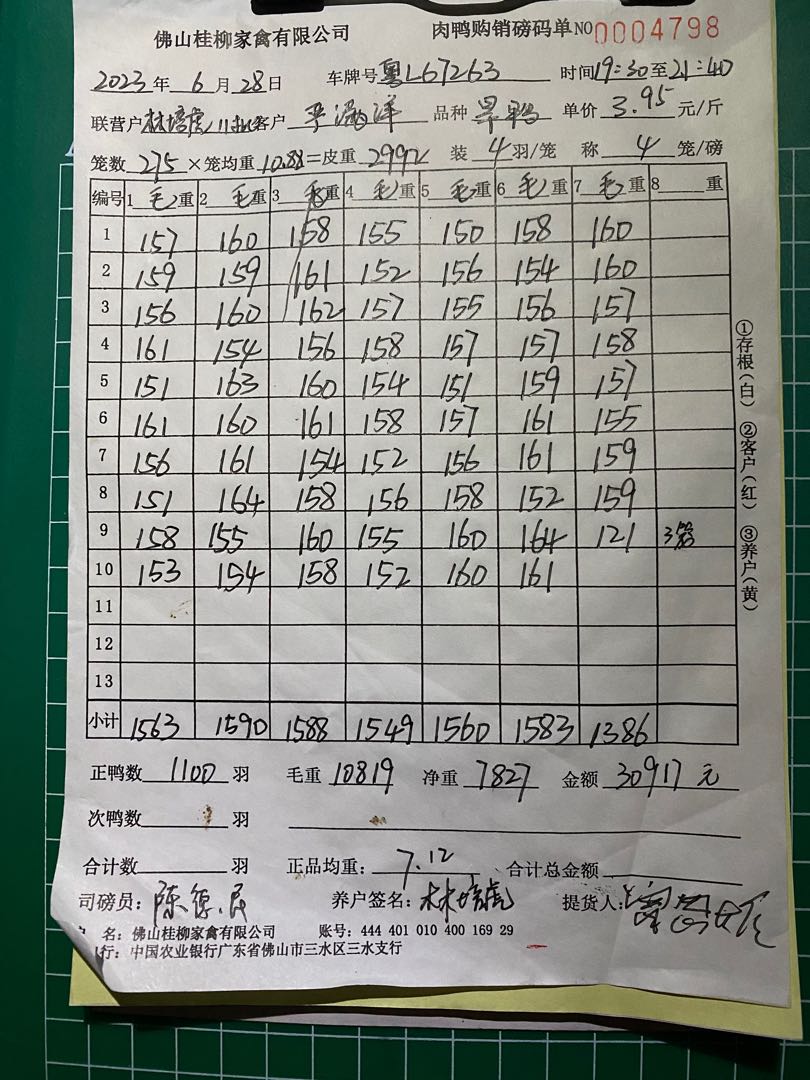 佛山桂柳家禽有限公司 肉鸭购销磅码单 NO 0004798
2023 年 6 月 28 日 车牌号 粤L67263 时间 19:30 至 21:40
联营户 林培虎 客户 洋 品种 旱鸭 单价 3.95 元/斤
笼数 275 ×笼均重 10.88 =皮重 2992 装 4 羽/笼 称 4 笼/磅
编号 1 毛 重 2 毛 重 3 毛 重 4 毛 重 5 毛 重 6 毛 重 7 毛 重 8 重
1 157 160 158 155 150 158 160
2 159 159 161 152 156 154 160
3 156 160 162 157 155 156 157
4 161 154 156 158 157 157 158
5 151 163 160 154 151 159 157
6 161 160 161 158 157 161 155
7 156 161 154 152 156 161 159
8 151 164 158 156 158 152 159
9 158 155 160 155 160 164 121 3笼
10 153 154 158 152 160 161
11
12
13
小计 1563 1590 1588 1549 1560 1583 1386
①存根(白) ②客户(红) ③养户(黄)
正鸭数 1100 羽 毛重 10819 净重 7827 金额 30917 元
次鸭数 羽
合计数 羽 正品均重: 7.12 合计总金额
司磅员: 陈德民 养户签名: 林培虎 提货人:
名: 佛山桂柳家禽有限公司 账号: 444 401 010 400 169 29
行: 中国农业银行广东省佛山市三水区三水支行